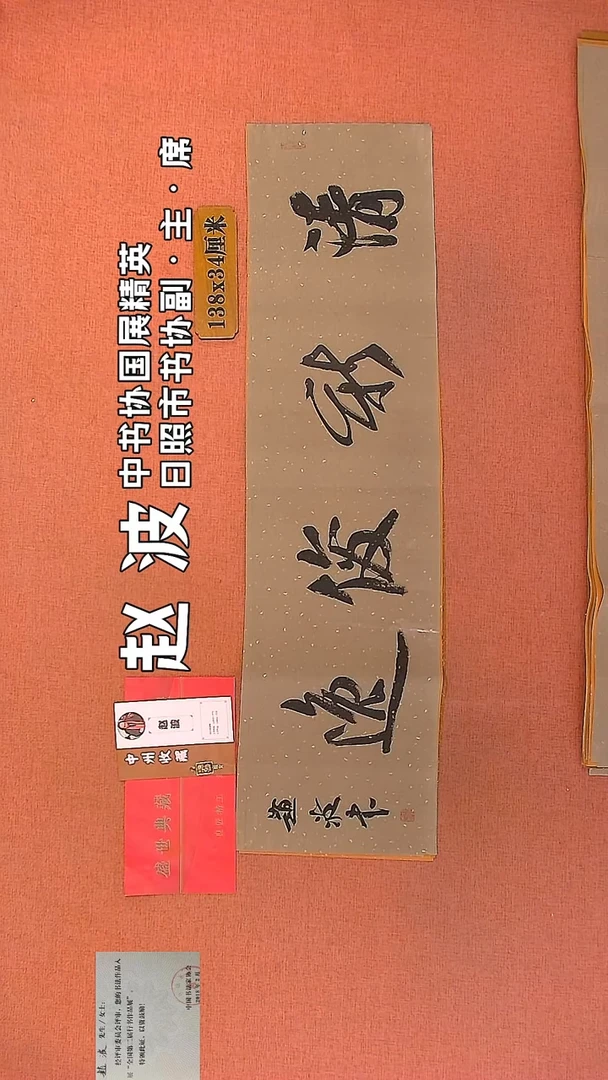 赵 波
中书协国展精英
日照市书协副·主·席
138x34厘米
清新俊逸
赵波书
赵波
中州收藏
盛世典藏
赵波 先生/女士:
经评审委员会评审，您的书法作品入
“全国第二届行书作品展”，
特颁此证，以资鼓励!
中国书法家协会